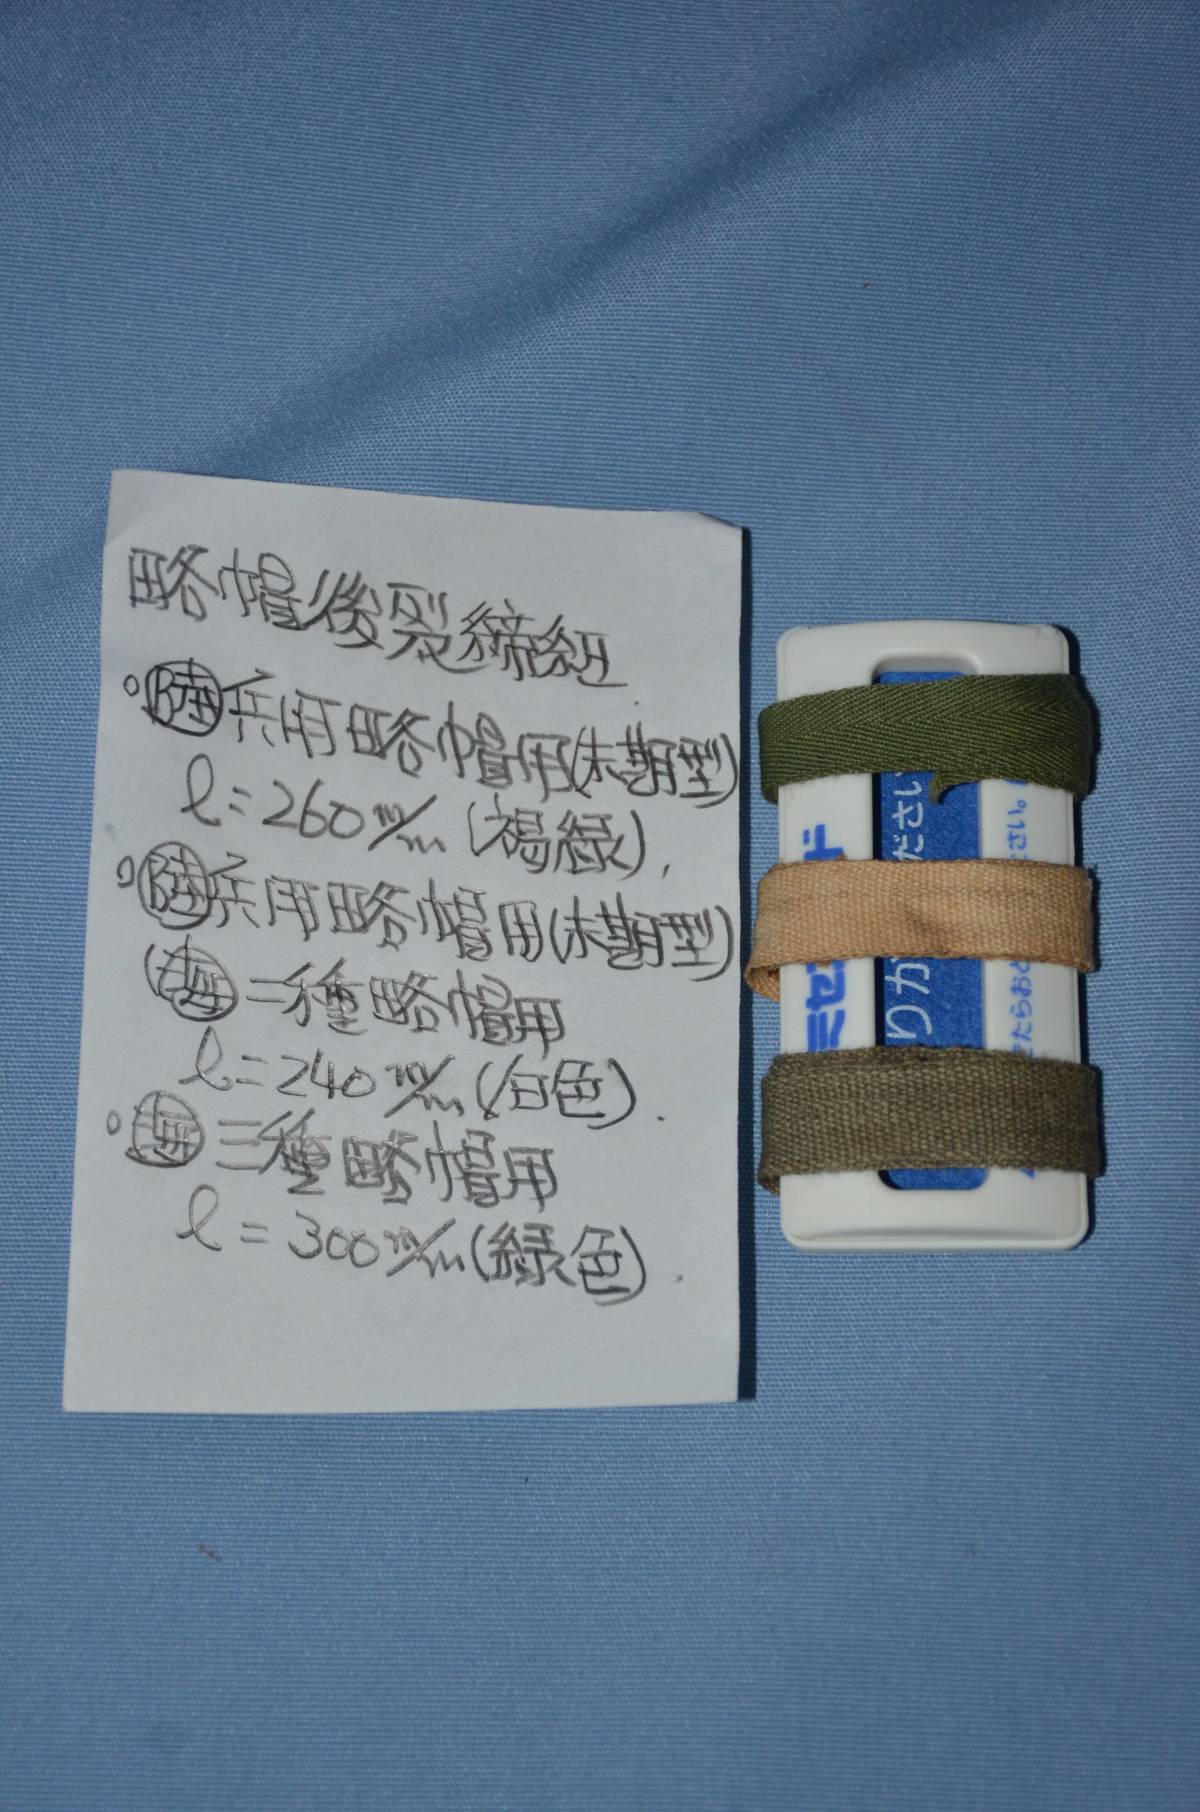 略帽後裂締紐
。陸兵用略帽用(末期型)
l=260m/m(褐緑).
。陸兵用略帽用(末期型)
(海二種略帽用
l=240m/m(白色).
。海三種略帽用
l=300m/m(緑色).
ド
ミセ
ださい
りか
さい。
たらおと